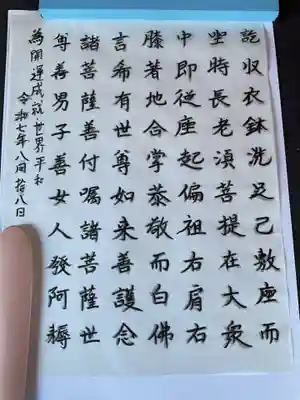 訖収衣鉢洗足己敷座而
坐時長老湏菩提在大衆
中即従座起偏袒右肩右
膝著地合掌恭敬而白佛
言希有世尊如来善護念
諸菩薩善付嘱諸菩薩世
尊善男子善女人發阿耨
為開運成就世界平和
令和七年八月拾八日